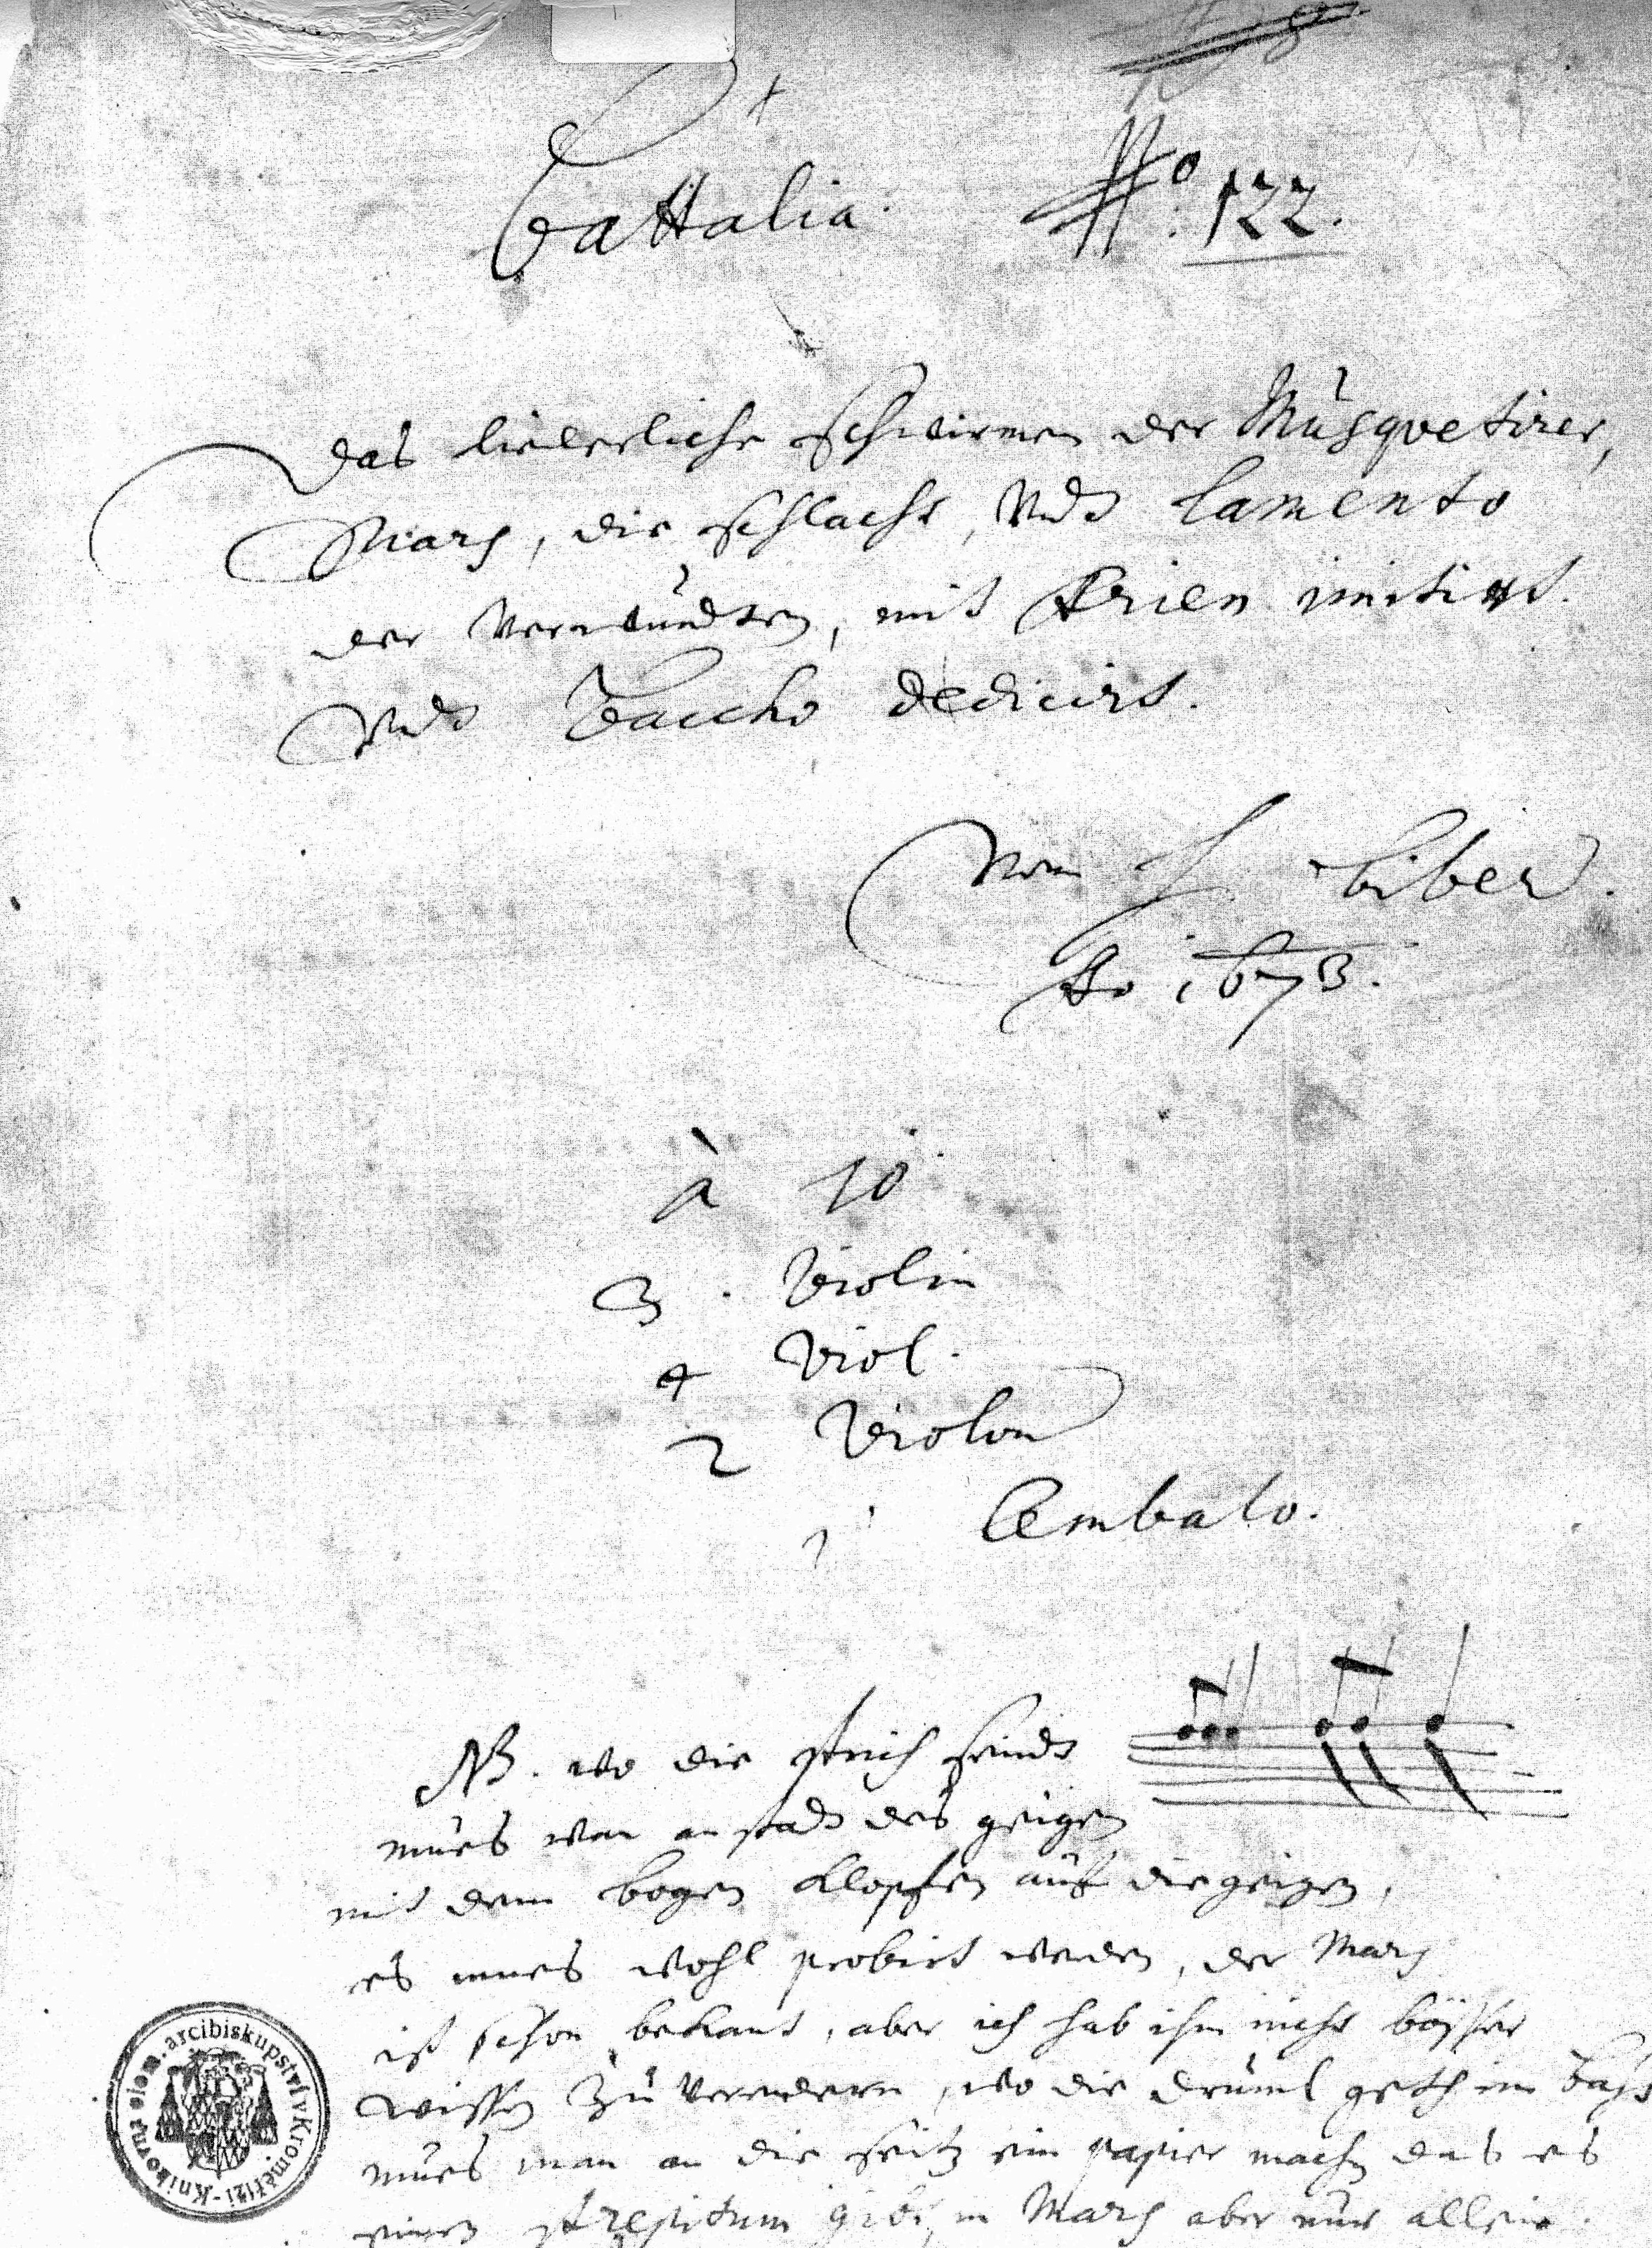 Battalia. No. 122.
Das liederliche schwirmen der Musquetirer,
Mars, die schlacht, Undt Lamento
der Verwundten, mit Arien imitirt.
Undt Baccho dedicirt.
Von H Biber.
Ao 1673.
à 10
3. Violin
4 Viol.
2 Violon
1 Cembalo.
NB. wo die strich sindt
mues man anstadt des geigen
mit dem bogen klopfen auf die geigen,
es mues wohl probirt werden, der Mars
ist schon bekant, aber ich hab ihn nicht bösser
wissen zu verendern, wo die druml geth im Bass
mues man an die seitz ein papier machen das es
einen strepitum gibt, in Mars aber nur allein.
Knihovna olom. arcibiskupství v Kroměříži